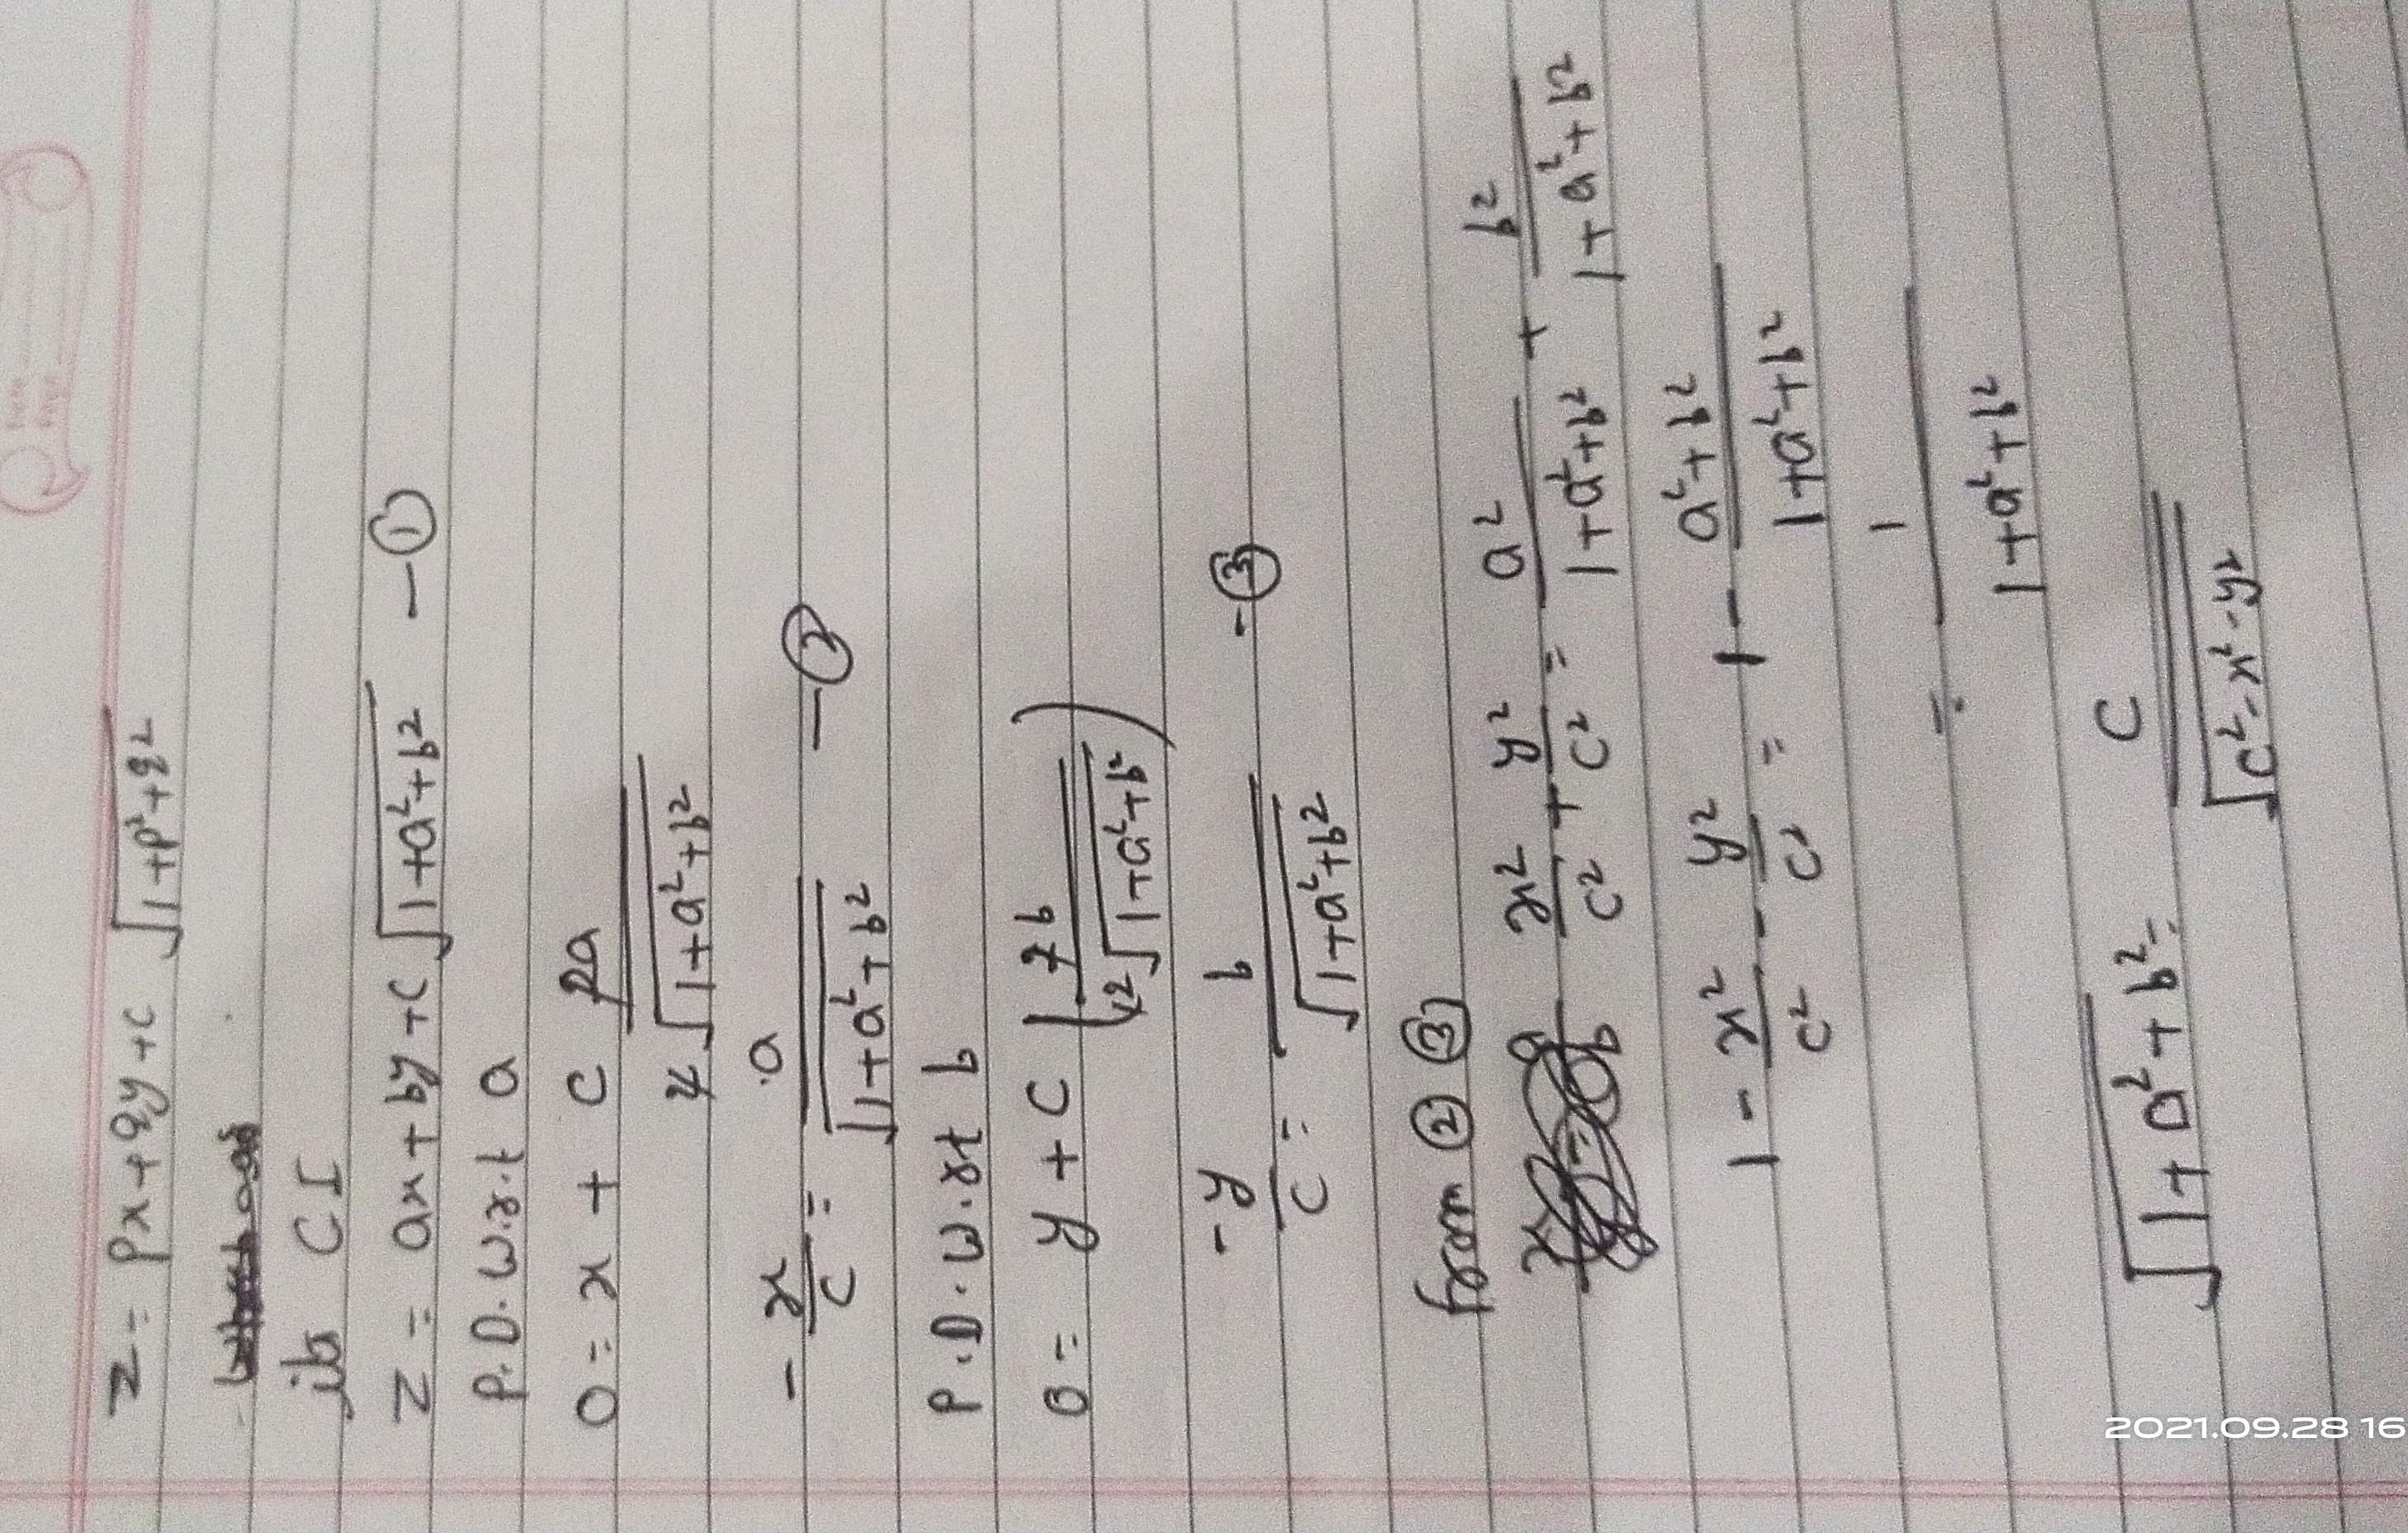 z = px + qy + c √1+p²+q²
is CI
z = ax + by + c √1+a²+b² — ①
P.D. w.r.t a
0 = x + c 2a / 2√1+a²+b²
- x/c = a / √1+a²+b² — ②
P.D. w.r.t b
0 = y + c ( 2b / 2√1+a²+b² )
- y/c = b / √1+a²+b² - ③
from ② ③
x²/c² + y²/c² = a² / 1+a²+b² + b² / 1+a²+b²
1 - x²/c² - y²/c² = 1 - a²+b² / 1+a²+b²
= 1 / 1+a²+b²
√1+a²+b² = c / √c²-x²-y²
2021.09.28 16